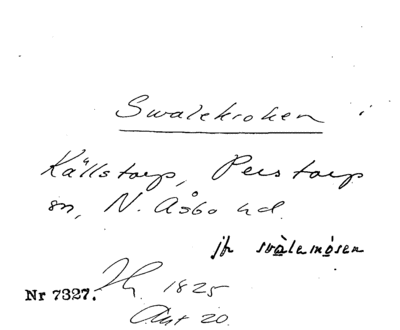 Swalekroken i
Källstorp, Perstorp
sn, N. Åsbo hd.
jfr svàlemòsen
Nr 7327. 1825
Akt 20.